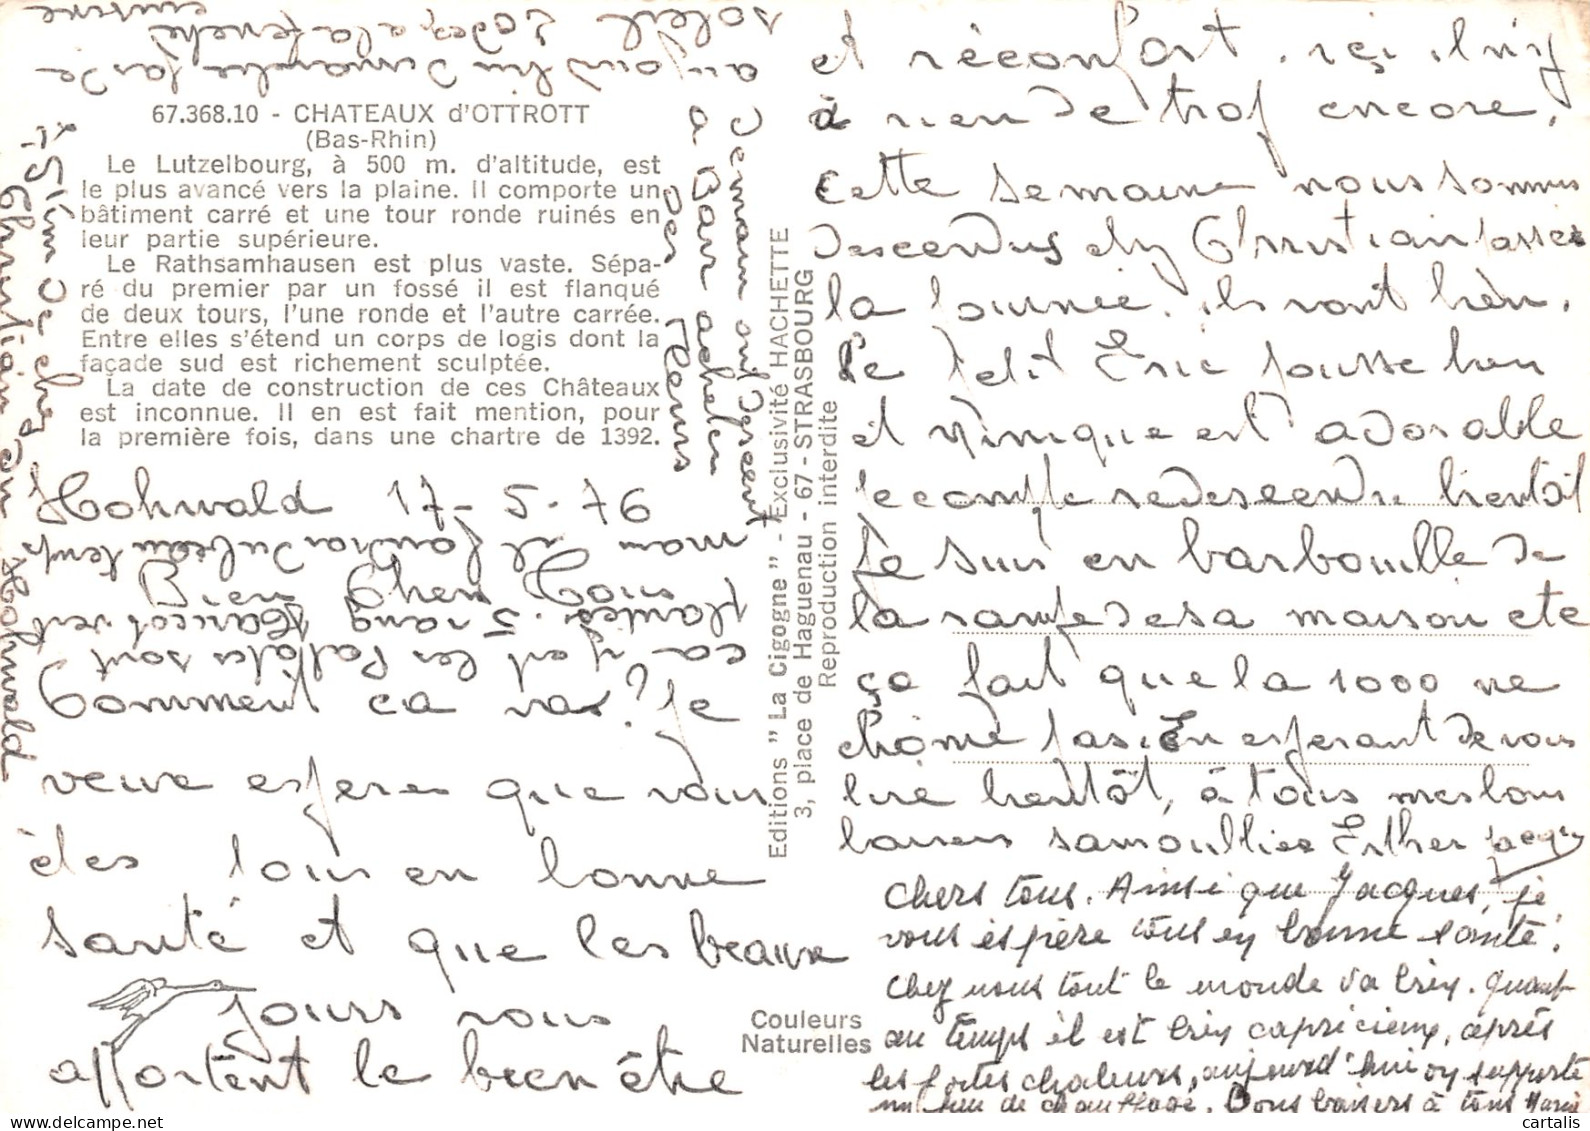 67.368.10 - CHATEAUX d'OTTROTT
(Bas-Rhin)
Le Lutzelbourg, à 500 m. d'altitude, est
le plus avancé vers la plaine. Il comporte un
bâtiment carré et une tour ronde ruinés en
leur partie supérieure.
Le Rathsamhausen est plus vaste. Sépa-
ré du premier par un fossé il est flanqué
de deux tours, l'une ronde et l'autre carrée.
Entre elles s'étend un corps de logis dont la
façade sud est richement sculptée.
La date de construction de ces Châteaux
est inconnue. Il en est fait mention, pour
la première fois, dans une chartre de 1392.
Hohwald 17-5-76
Bien Chers
Comment ca vas? Je
veux esperer que vous
étes tous en bonne
santé et que les beaux
jours vous
apportent le bien être
et réconfort. ici il n'y
à rien de trop encore,
cette semaine nous sommes
descendus chez Christian passer
la journée. ils vont bien.
le petit Eric pousse bien
et est adorable
je compte redescendre bientôt
Je suis en barbouille de
la rampe de sa maison et
ça fait que la 1000 ne
chôme pas. En esperant de vous
lire bientôt, à tous mes bons
baisers Esther Jacques
Chers tous. Ainsi que Jacques, je
vous éspère tous en bonne santé.
Chez nous tout le monde va bien. Quant
au temps il est bien capricieux, après
les fortes chaleurs, aujourd'hui on supporte
un peu de chauffage. Bons baisers à tous Marie
ca y est les patates sont
plantés. 5 rang Haricot vert
mais il faudra du beau temps
demain on descent
a Barr acheter
des fleurs
aujourd'hui dimanche pas de
soleil 20 deg a la
cuisine
Christian du Hohwald
Editions "La Cigogne" - Exclusivité HACHETTE
3, place de Haguenau - 67 - STRASBOURG
Reproduction interdite
Couleurs
Naturelles
cartalis